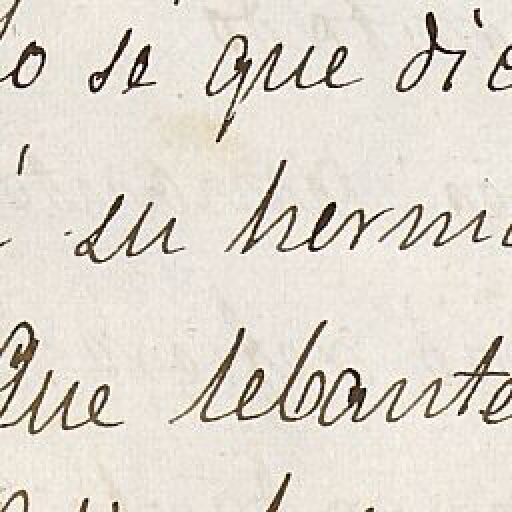 lo se que dic
su herma
Que lebante